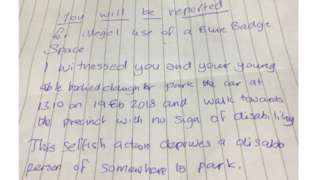 You will be reported
for illegal use of a Blue Badge
Space
I witnessed you and your young
able bodied daughter park the car at
13.10 on 19 Feb 2018 and walk towards
the precinct with no sign of disability
This selfish action deprives a disabled
person of somewhere to park.